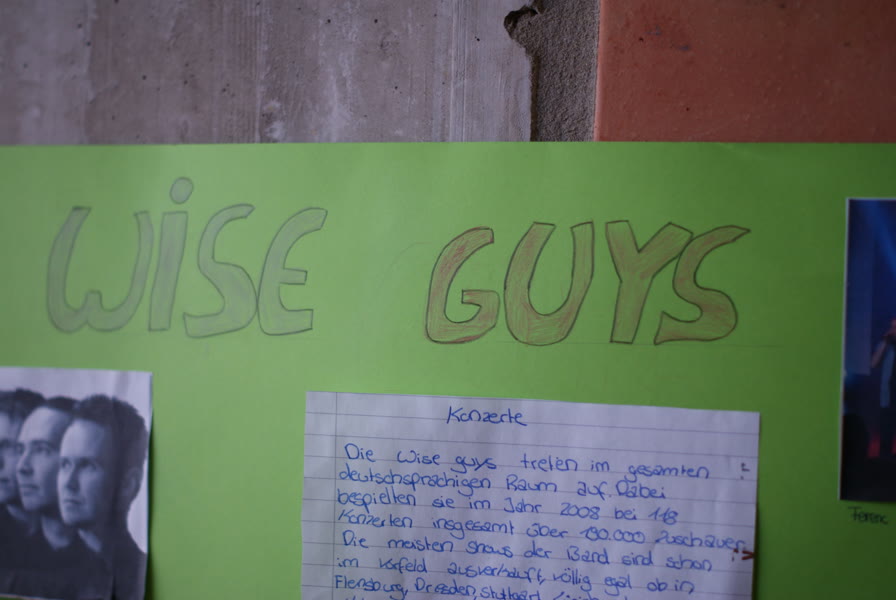 WiSE GUYS
Konzerte
Die Wise guys treten im gesamten
deutschsprachigen Raum auf. Dabei
bespielten sie im Jahr 2008 bei 118
Konzerten insgesamt über 190.000 Zuschauer
Die meisten shows der Band sind schon
im vorfeld ausverkauft, völlig egal ob in
Flensburg, Dresden, Stuttgart
Ferenc